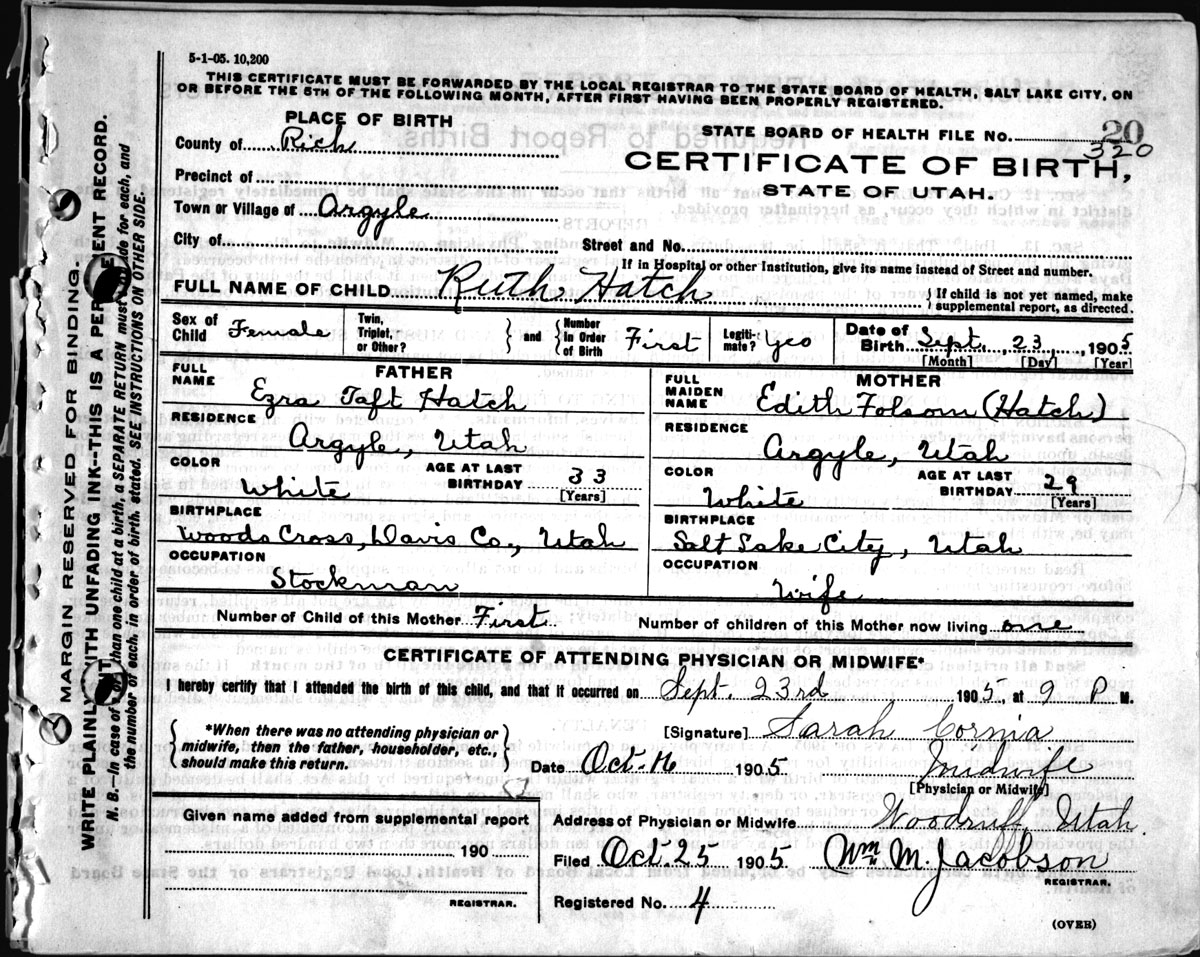 5-1-05. 10,200
THIS CERTIFICATE MUST BE FORWARDED BY THE LOCAL REGISTRAR TO THE STATE BOARD OF HEALTH, SALT LAKE CITY, ON
OR BEFORE THE 5TH OF THE FOLLOWING MONTH, AFTER FIRST HAVING BEEN PROPERLY REGISTERED.
PLACE OF BIRTH
County of Rich
Precinct of
Town or Village of Argyle
City of
STATE BOARD OF HEALTH FILE NO. 20
320
CERTIFICATE OF BIRTH,
STATE OF UTAH.
Street and No.
If in Hospital or other Institution, give its name instead of Street and number.
FULL NAME OF CHILD Ruth Hatch
{ If child is not yet named, make
supplemental report, as directed.
Sex of Child Female
Twin, Triplet, or Other?
} and { Number in Order of Birth First
Legiti-mate? Yes
Date of Birth Sept., 23, 1905
[Month] [Day] [Year]
FATHER
FULL NAME Ezra Taft Hatch
RESIDENCE
Argyle, Utah
COLOR White
AGE AT LAST BIRTHDAY 33
[Years]
BIRTHPLACE
Woods Cross, Davis Co., Utah
OCCUPATION
Stockman
MOTHER
FULL MAIDEN NAME Edith Folsom (Hatch)
RESIDENCE
Argyle, Utah
COLOR White
AGE AT LAST BIRTHDAY 29
[Years]
BIRTHPLACE
Salt Lake City, Utah
OCCUPATION
Wife
Number of Child of this Mother First
Number of children of this Mother now living one
CERTIFICATE OF ATTENDING PHYSICIAN OR MIDWIFE*
I hereby certify that I attended the birth of this child, and that it occurred on Sept. 23rd 1905, at 9 P M.
{ *When there was no attending physician or
midwife, then the father, householder, etc.,
should make this return. }
[Signature] Sarah Cornia
Date Oct. 16 1905
Midwife
[Physician or Midwife]
Given name added from supplemental report
190
REGISTRAR.
Address of Physician or Midwife Woodruff, Utah.
Filed Oct. 25 1905. Wm. M. Jacobson
REGISTRAR.
Registered No. 4
(OVER)
MARGIN RESERVED FOR BINDING.
WRITE PLAINLY WITH UNFADING INK--THIS IS A PERMANENT RECORD.
N. B.--In case of more than one child at a birth, a SEPARATE RETURN must be made for each, and
the number of each, in order of birth, stated. SEE INSTRUCTIONS ON OTHER SIDE.